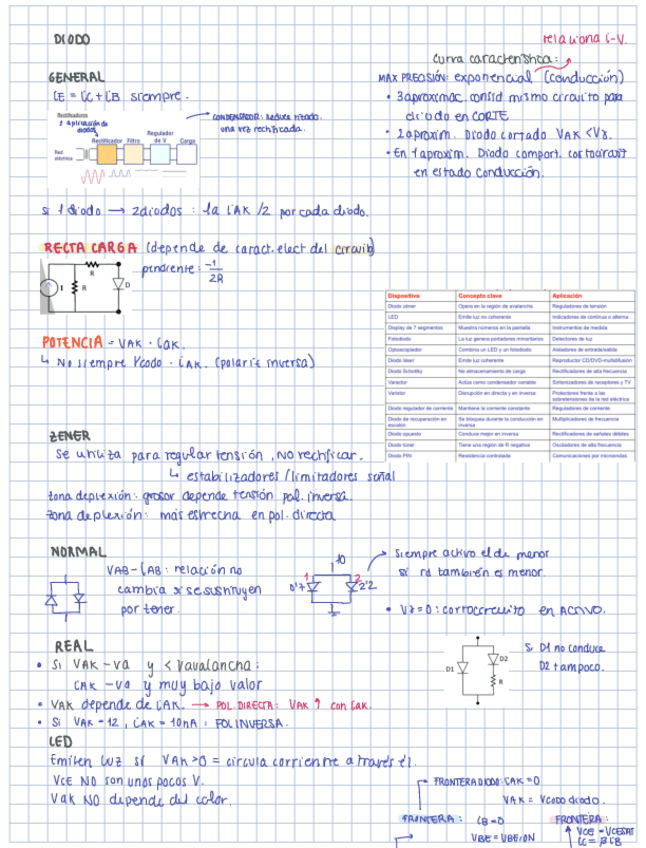 DIODO
relaciona i-V.
curva característica:
GENERAL
iE = iC + iB siempre.
MAX PRECISIÓN: exponencial (conducción)
• 3 aproximac. consid mismo circuito para
diodo en CORTE
• 2 aproxim. Diodo cortado VAK < Vγ.
• En 1 aproxim. Diodo comport. cortocircuit
en estado conducción.
Rectificadores
1 aplicación de
diodos
CONDENSADOR: Reduce rizado.
una vez rectificada.
Rectificador
Filtro
Regulador
de V
Carga
Red
eléctrica
si 1 diodo → 2 diodos : la iAK /2 por cada diodo.
RECTA CARGA (depende de caract. elect del circuito)
pendiente: -1
2R
R
I
R
D
POTENCIA = VAK · iAK.
↳ No siempre Vcodo · iAK. (polariz inversa)
Dispositivo Concepto clave Aplicación
Diodo zéner Opera en la región de avalancha Reguladores de tensión
LED Emite luz no coherente Indicadores de continua o alterna
Display de 7 segmentos Muestra números en la pantalla Instrumentos de medida
Fotodiodo La luz genera portadores minoritarios Detectores de luz
Optoacoplador Combina un LED y un fotodiodo Aisladores de entrada/salida
Diodo láser Emite luz coherente Reproductor CD/DVD-multidifusión
Diodo Schottky No almacenamiento de carga Rectificadores de alta frecuencia
Varactor Actúa como condensador variable Sintonizadores de receptores y TV
Varistor Disrupción en directa y en inversa Protectores frente a las
sobretensiones de la red eléctrica
Diodo regulador de corriente Mantiene la corriente constante Reguladores de corriente
Diodo de recuperación en
escalón Se bloquea durante la conducción en
inversa Multiplicadores de frecuencia
Diodo opuesto Conduce mejor en inversa Rectificadores de señales débiles
Diodo túnel Tiene una región de R negativa Osciladores de alta frecuencia
Diodo PIN Resistencia controlada Comunicaciones por microondas
ZENER
Se utiliza para regular tensión, NO rectificar.
↳ estabilizadores / limitadores señal
zona deplexión: grosor depende tensión pol. inversa.
zona deplexión: más estrecha en pol. directa
NORMAL
VAB - iAB: relación no
cambia si se sustituyen
por zener.
10
1
2
0'7
2'2
→ Siempre activo el de menor
si rd también es menor.
• Vγ = 0 : cortocircuito en ACTIVO.
D1
D2
R
Si D1 no conduce
D2 tampoco.
REAL
• Si VAK -va y < Vavalancha:
iAK -va y muy bajo valor
• VAK depende de iAK. → POL. DIRECTA: VAK ↑ con iAK.
• Si VAK = 12, iAK = 10nA : POL INVERSA.
LED
Emiten luz si VAK > 0 = circula corriente a través él.
VCE NO son unos pocos V.
VAK NO depende del color.
FRONTERA DIODO: iAK = 0
VAK = Vcodo diodo.
FRONTERA: iB = 0
VBE = VBEON
FRONTERA:
VCE = VCESAT
iC = β iB